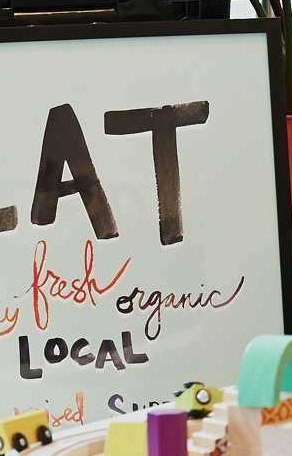 EAT
y fresh organic
LOCAL
ised Supp